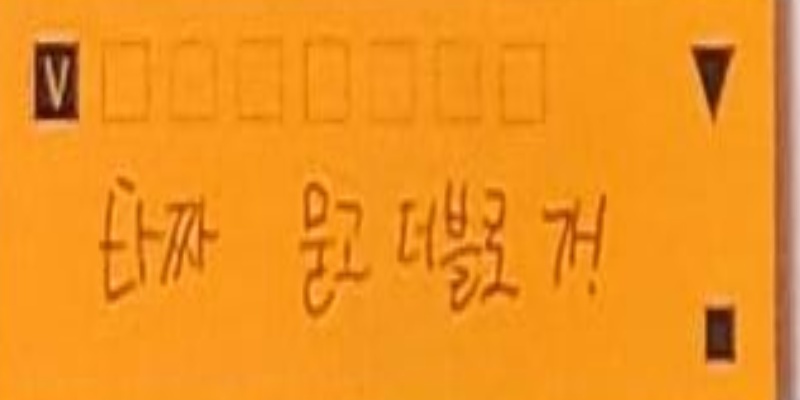 V
타짜 묻고 더블로 가!